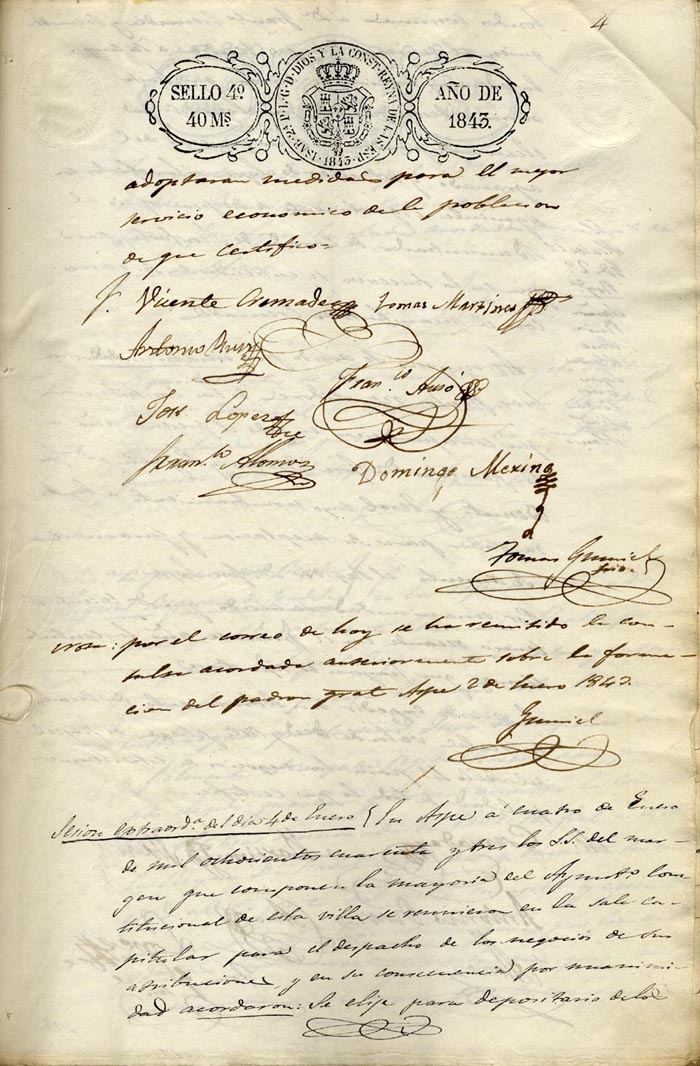 4
SELLO 4º
40 Mˢ
ISAB. 2ª P. L. G. D. DIOS Y LA CONST. REYNA DE LAS ESP.
1843.
AÑO DE
1843.
adoptaran medidas para el mejor
servicio economico de la poblacion
de que certifico=
Vicente Cremades Tomas Martinez
Antonio Ruiz
Franᶜᵒ Ausó
Jose Lopez
Franᶜᵒ Alonso
Domingo Merino
Tomas Gumiel
Srio.
Nota: por el correo de hoy se ha remitido la con-
sulta acordada anteriormente sobre la forma-
cion del padron gral Aspe 2 de Enero 1843.
Gumiel
Sesion extraordᵃ del dia 4 de Enero } En Aspe á cuatro de Enero
de mil ochocientos cuarenta y tres los S.S. del mar-
gen que componen la mayoria del Ayunto Cons-
titucional de esta villa se reunieron en la sala ca-
pitular para el despacho de los negocios de sus
atribuciones y en su consecuencia por unanimi-
dad acordaron: Se elije para depositario de los